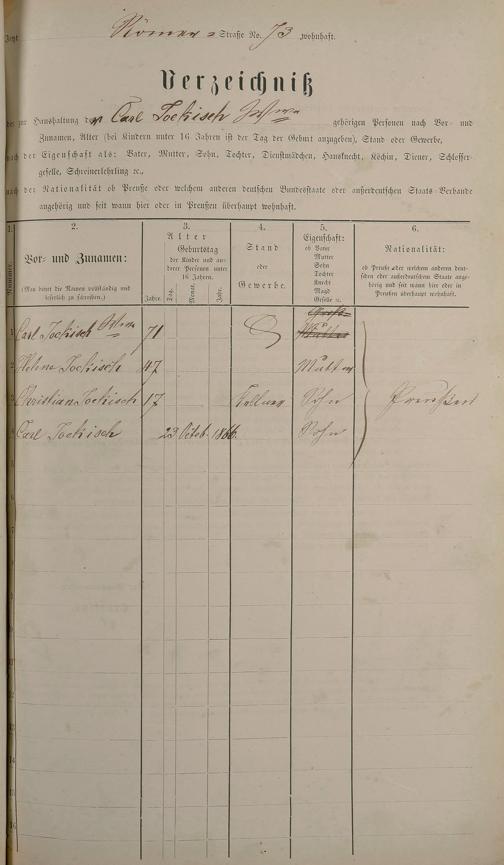 Jetzt Römer - Straße No. 73 wohnhaft.
Verzeichniß
der zur Haushaltung der Carl Jockisch Wwe gehörigen Personen nach Vor- und
Zunamen, Alter (bei Kindern unter 16 Jahren ist der Tag der Geburt anzugeben), Stand oder Gewerbe,
nach der Eigenschaft als: Vater, Mutter, Sohn, Tochter, Dienstmädchen, Hausknecht, Köchin, Diener, Schlosser-
geselle, Schreinerlehrling ꝛc.,
nach der Nationalität ob Preuße oder welchem anderen deutschen Bundesstaate oder außerdeutschen Staats-Verbande
angehörig und seit wann hier oder in Preußen überhaupt wohnhaft.
1. 2. 3. 4. 5. 6.
Nummer.
Vor- und Zunamen:
(Man bittet die Namen vollständig und
leserlich zu schreiben.)
Alter
Geburtstag
der Kinder und an-
derer Personen unter
16 Jahren.
Jahre. Tag. Monat. Jahr.
Stand
oder
Gewerbe.
Eigenschaft:
ob Vater
Mutter
Sohn
Tochter
Knecht
Magd
Geselle ꝛc.
Nationalität:
ob Preuße oder welchem andern deut-
schen oder außerdeutschen Staate ange-
hörig und seit wann hier oder in
Preußen überhaupt wohnhaft.
1 Carl Jockisch Wwe 71 Mutter
2 Helene Jockisch 47 Mutter
3 Christian Jockisch 17 Sohn Preußen
4 Carl Jockisch 23 Octob. 1866 Sohn
5
6
7
8
9
10
11
12
13
14
15
16